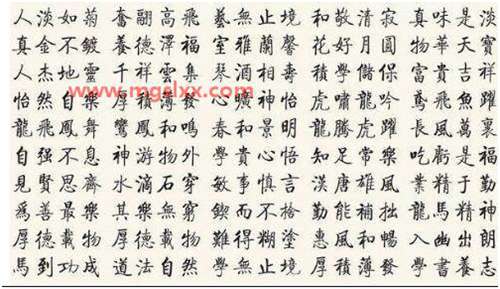 人淡如菊 奮翮高飛 藝無止境 和敬清寂 真味是淡
真金不鍍 養德澤福 室雅蘭馨 花好月圓 物華天寶
人杰地靈 千祥雲集 富貴吉祥
怡然自樂 厚積薄發 心曠神怡 虎嘯龍吟 鳶飛魚躍
龍飛鳳舞 鸞鳳和鳴 春和景明 龍騰虎躍 長風萬裏
自强不息 神游物外 學貴心悟 知足常樂 吃虧是福
見賢思齊 水滴石穿 敏事慎言 漢唐雄風 業精于勤
爲善最樂 其樂無窮 鍥而不捨 勤能補拙 龍馬精神
厚德載物 厚德載物 難得糊塗 惠風和暢 入幽出朗
馬到功成 道法自然 學無止境 厚積薄發 學書養志
www.mgslxx.com